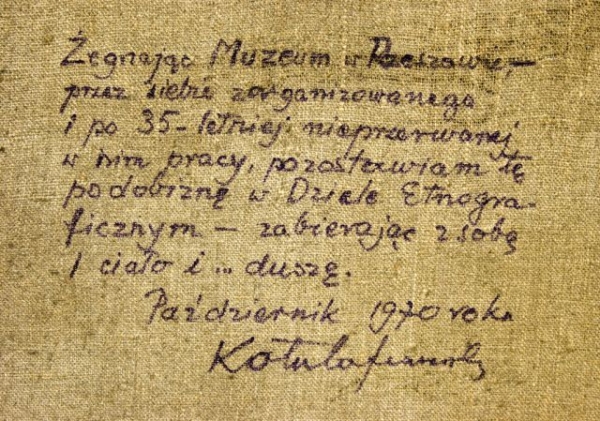 Żegnając Muzeum w Rzeszowie, —
przez siebie zorganizowanego
i po 35-letniej nieprzerwanej
w nim pracy, pozostawiam tę
podobiznę w Dziale Etnogra-
ficznym — zabierając z sobą
i ciało i ... duszę.
Październik 1970 roku
Kotula Franciszek